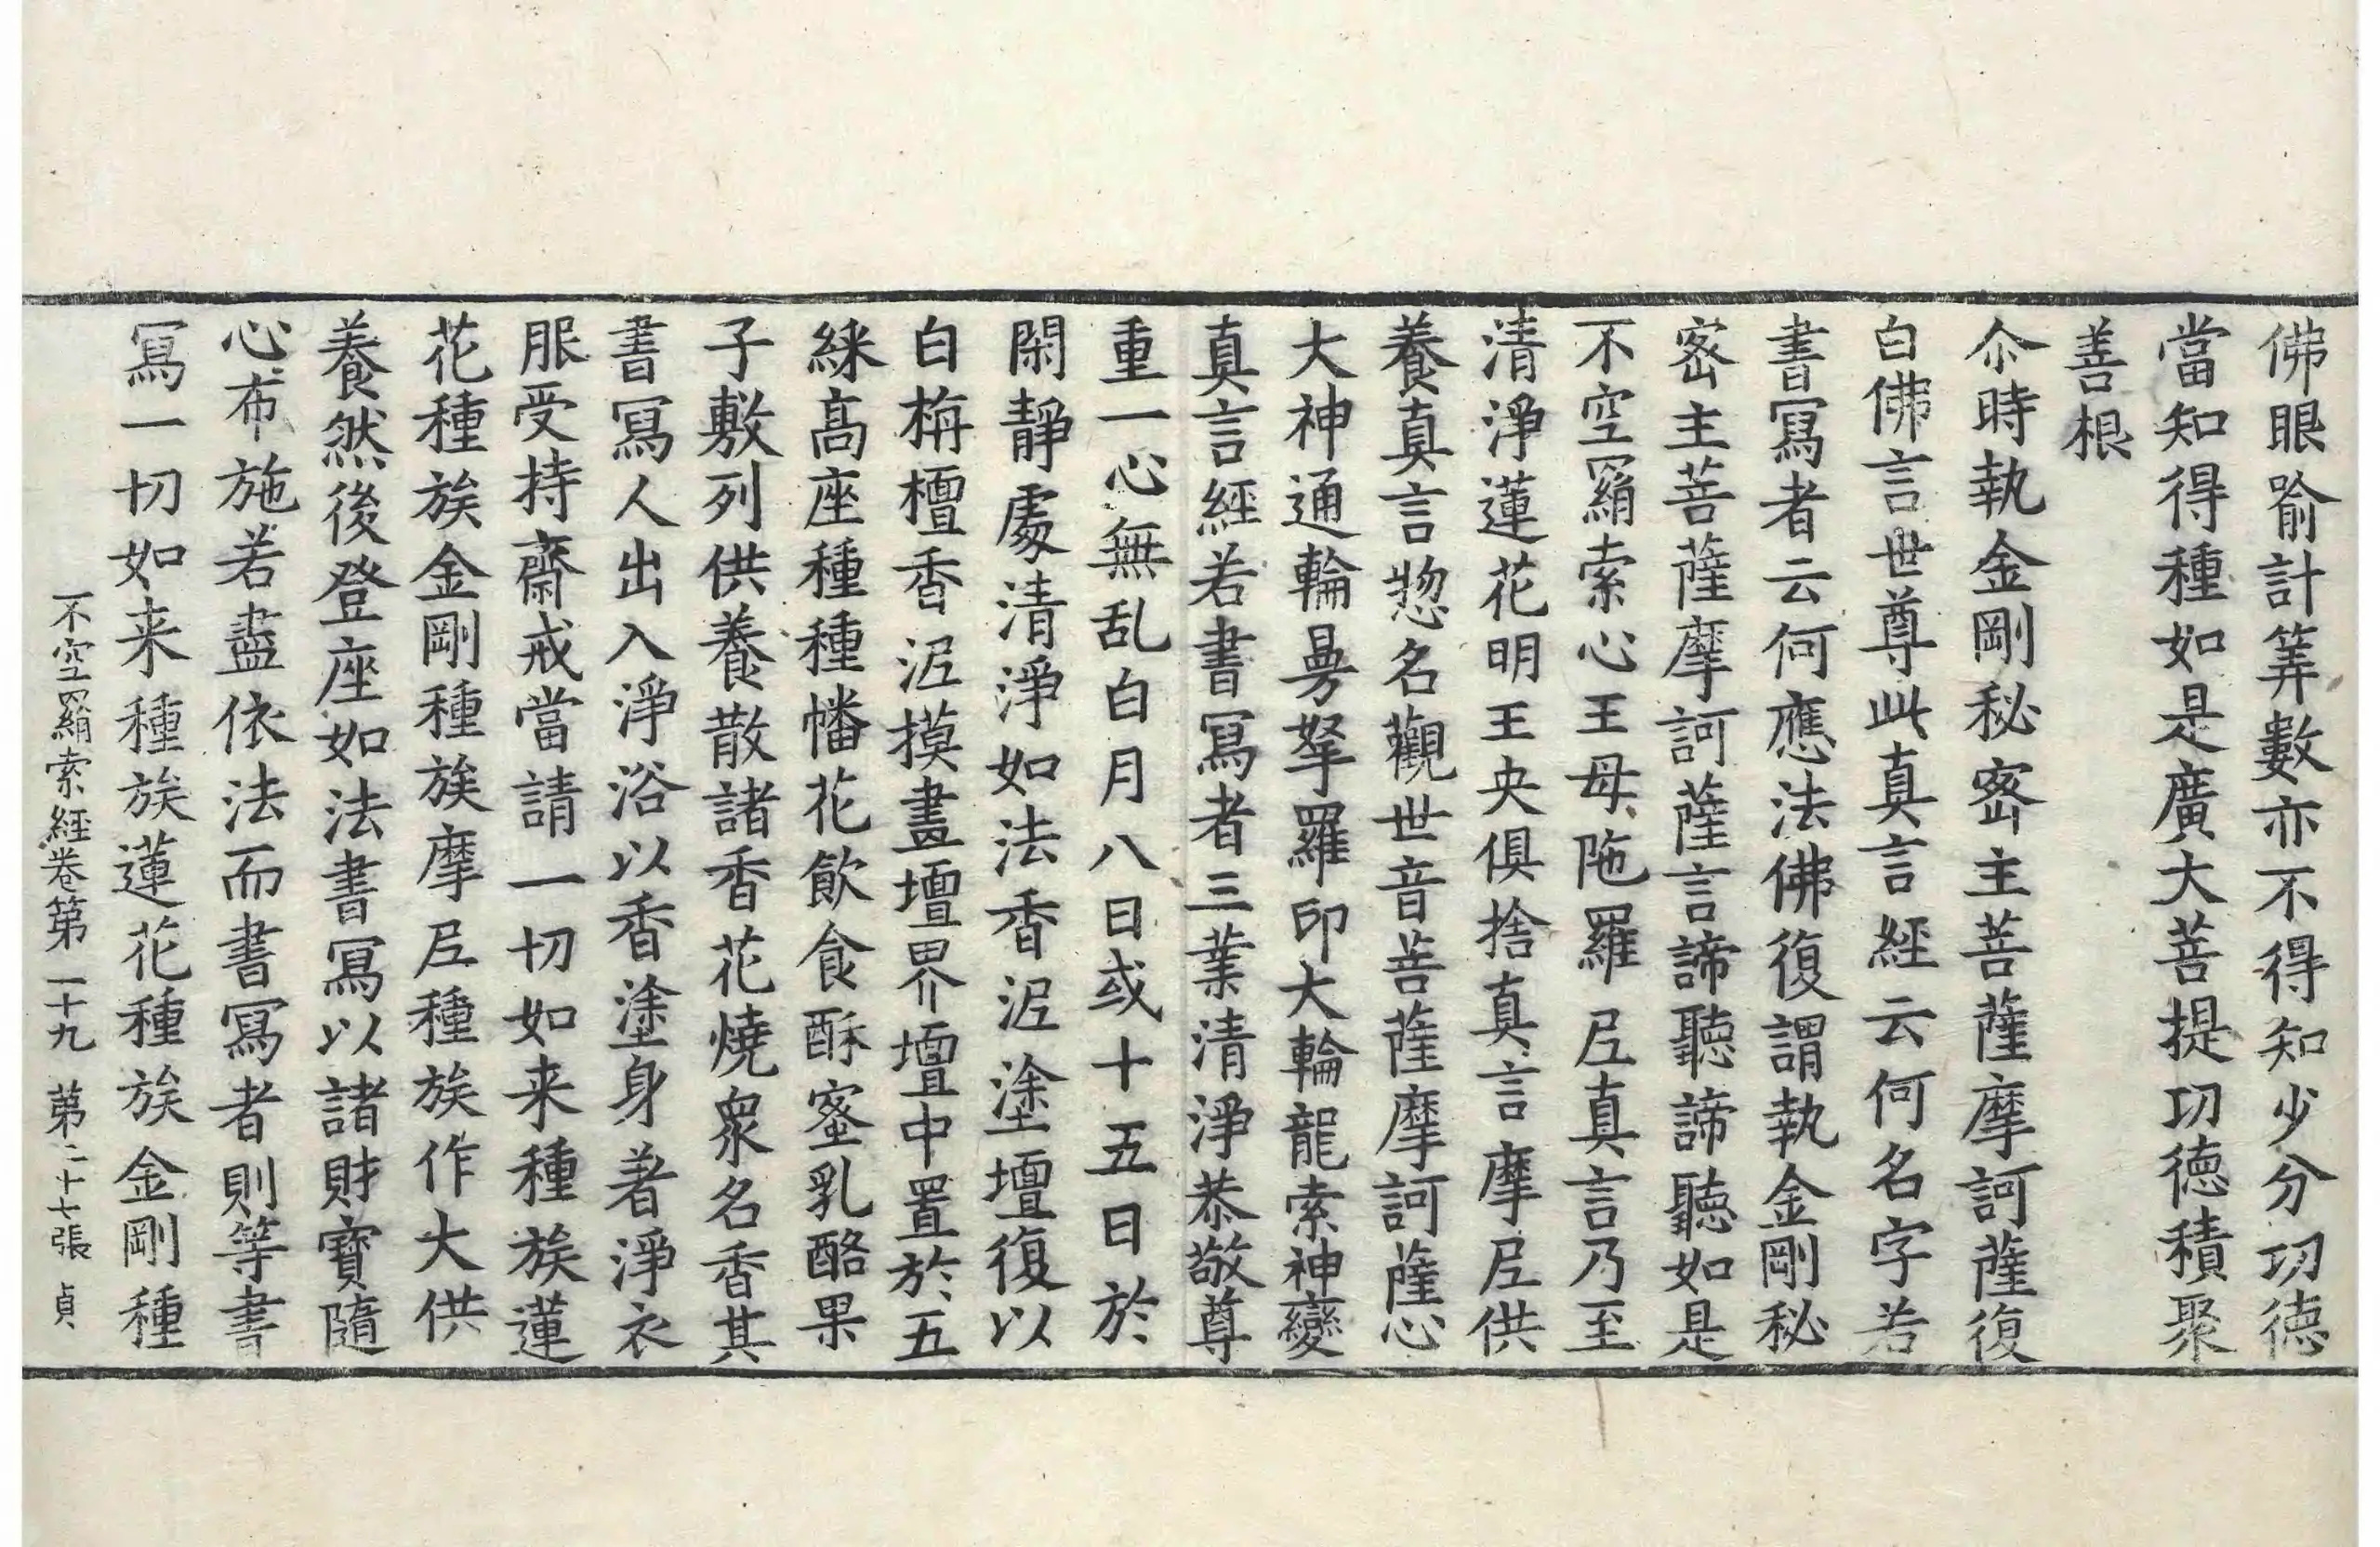 佛眼喻計筭數亦不得知少分功徳
當知得種如是廣大菩提功徳積聚
善根
尒時執金剛秘密主菩薩摩訶薩復
白佛言世尊此真言經云何名字若
書寫者云何應法佛復謂執金剛秘
密主菩薩摩訶薩言諦聽諦聽如是
不空羂索心王母陁羅尼真言乃至
清淨蓮花明王央俱捨真言摩尼供
養真言惣名觀世音菩薩摩訶薩心
大神通輪曼拏羅印大輪龍索神變
真言經若書寫者三業清淨恭敬尊
重一心無乱白月八日或十五日於
閑靜處清淨如法香泥塗壇復以
白栴檀香泥摸畫壇界壇中置於五
綵髙座種種幡花飲食酥蜜乳酪果
子敷列供養散諸香花燒衆名香其
書寫人出入淨浴以香塗身著淨衣
服受持齋戒當請一切如来種族蓮
花種族金剛種族摩尼種族作大供
養然後登座如法書寫以諸財寶隨
心布施若盡依法而書寫者則等書
寫一切如来種族蓮花種族金剛種
不空羂索經卷第二十九 第二十七張 貞